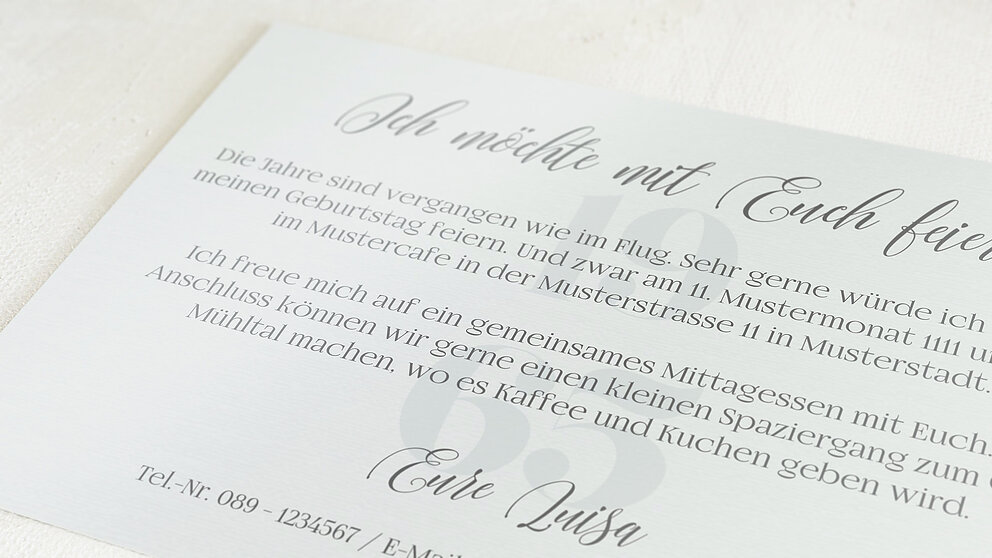 Ich möchte mit Euch feier
Die Jahre sind vergangen wie im Flug. Sehr gerne würde ich
meinen Geburtstag feiern. Und zwar am 11. Mustermonat 1111 u
im Mustercafe in der Musterstrasse 11 in Musterstadt.
Ich freue mich auf ein gemeinsames Mittagessen mit Euch.
Anschluss können wir gerne einen kleinen Spaziergang zum
Mühltal machen, wo es Kaffee und Kuchen geben wird.
19
65
Eure Luisa
Tel.-Nr. 089 - 1234567 / E-Mail